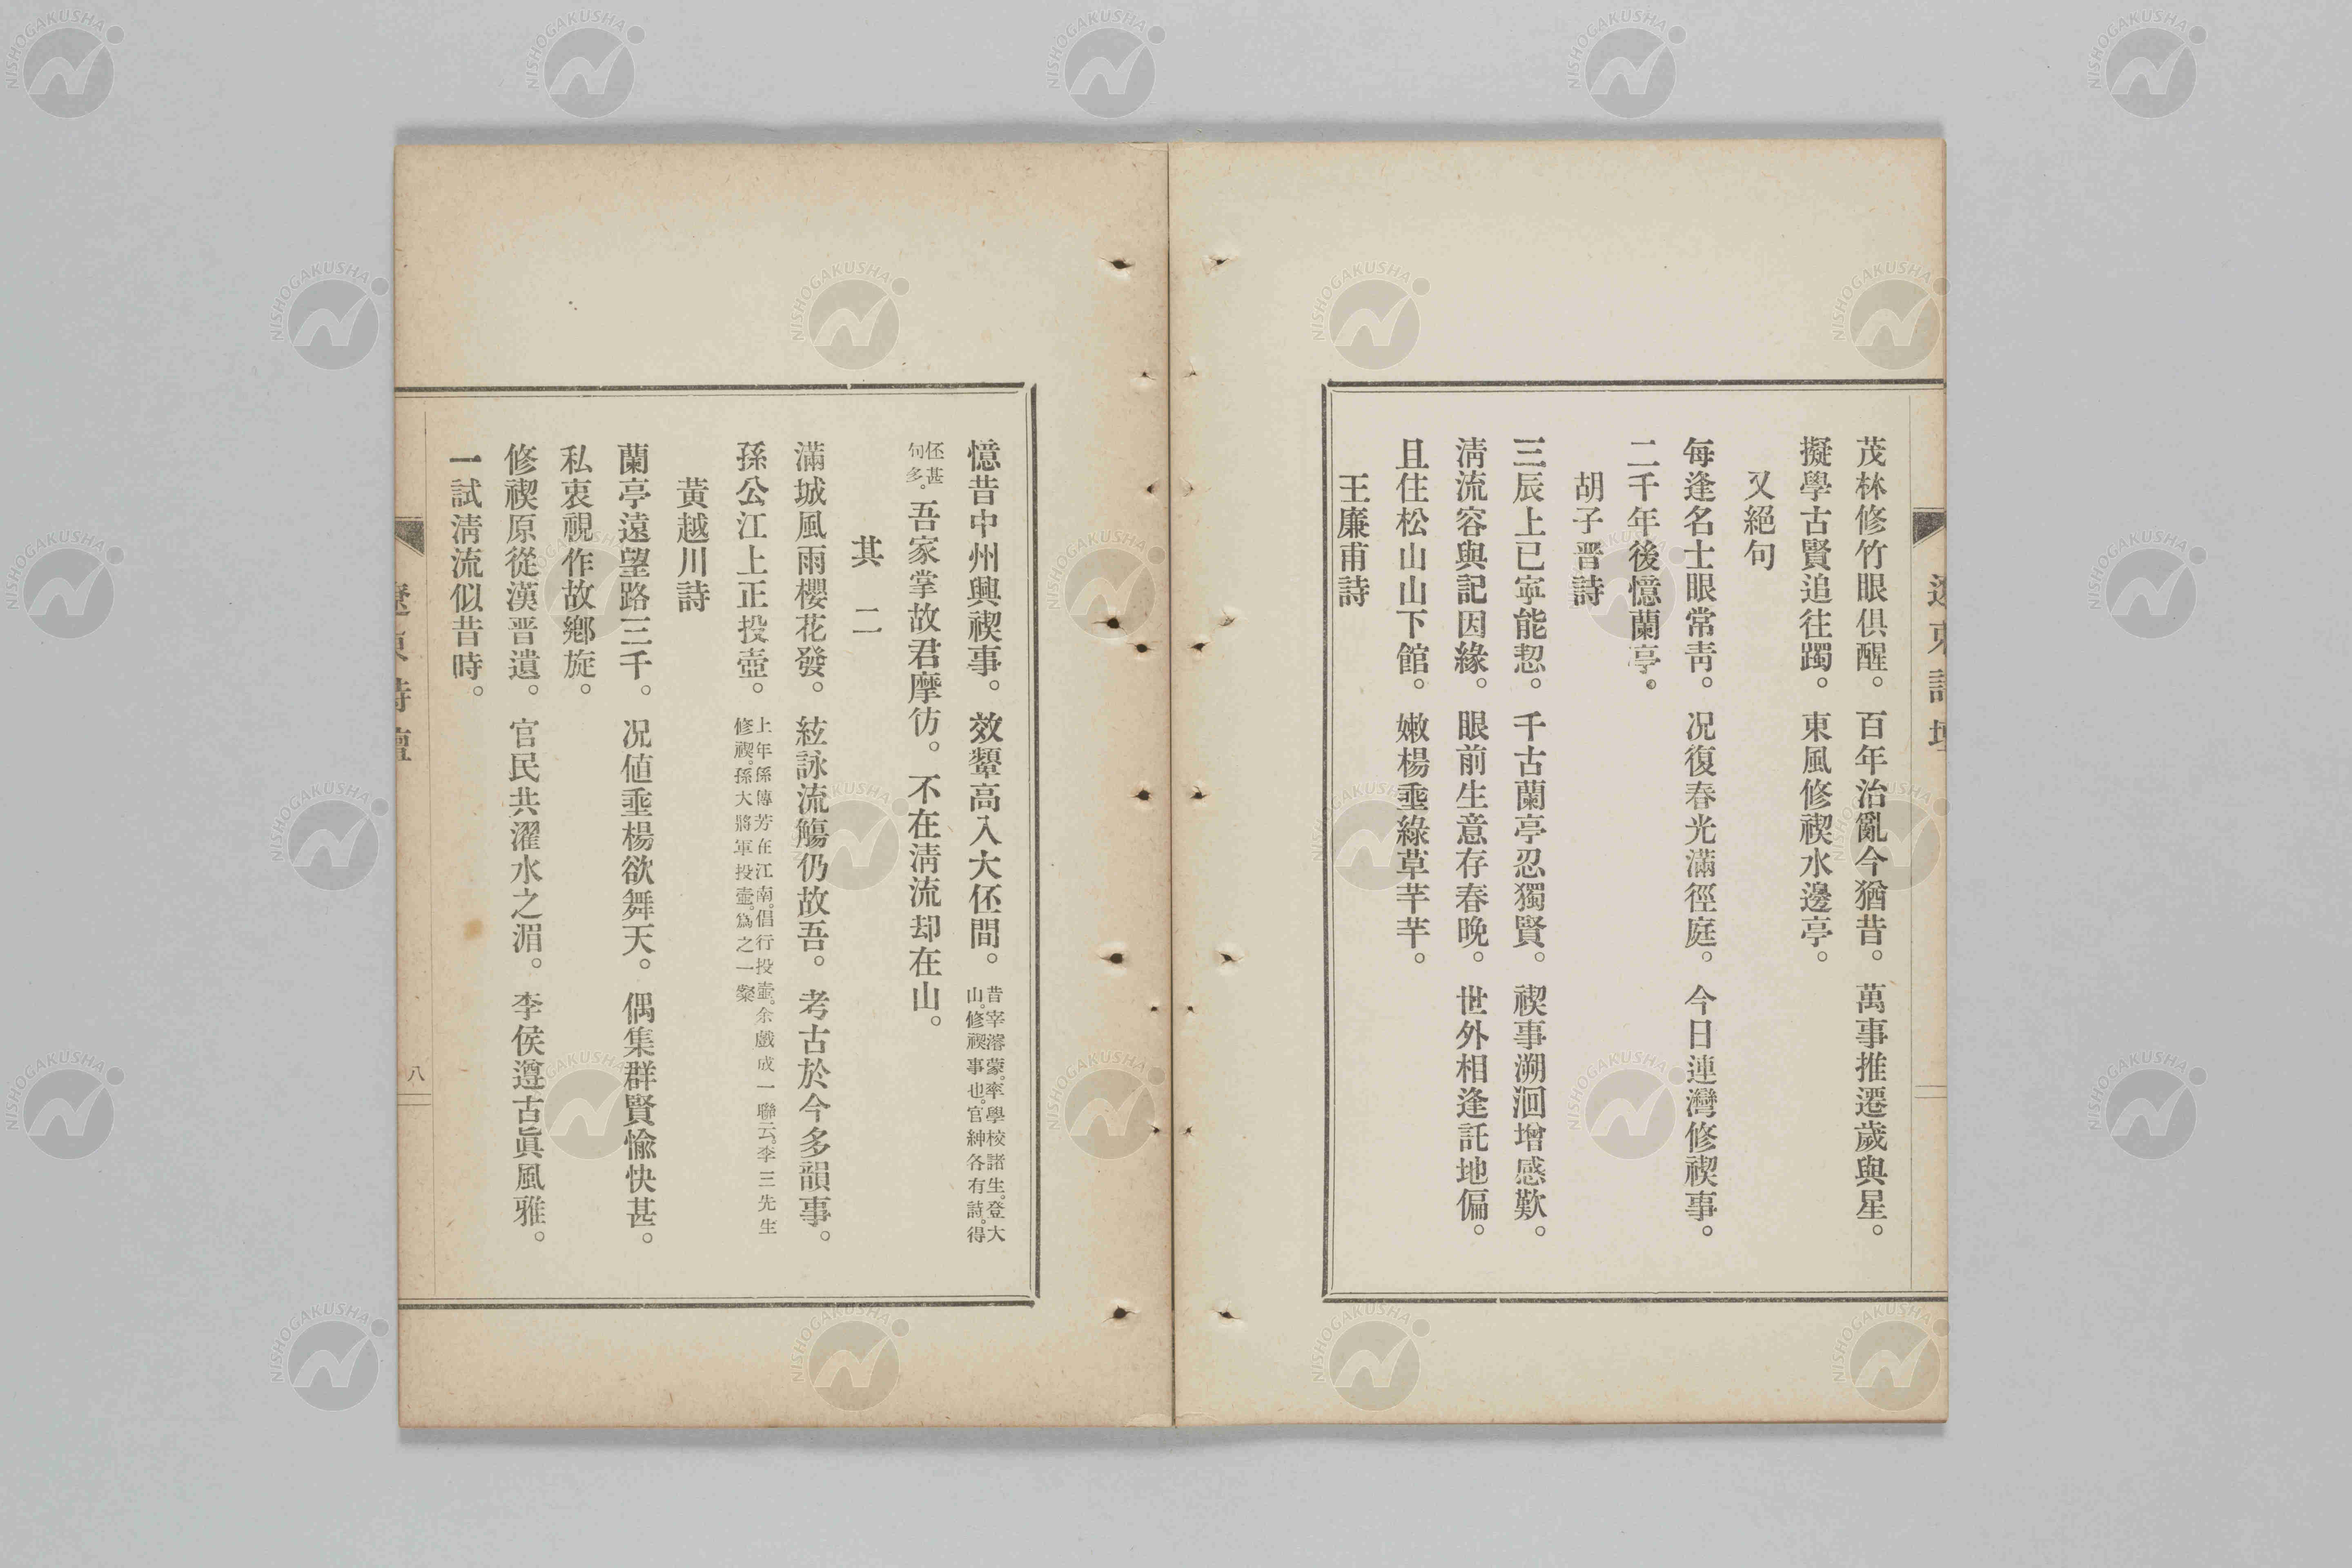 茂林修竹眼俱醒。百年治亂今猶昔。萬事推遷歲與星。
擬學古賢追往躅。東風修禊水邊亭。
又絕句
每逢名士眼常靑。况復春光滿徑庭。今日連灣修禊事。
二千年後憶蘭亭。
胡子晋詩
三辰上已寧能恝。千古蘭亭忍獨賢。禊事溯洄增感歎。
淸流容與記因緣。眼前生意存春晚。世外相逢託地偏。
且住松山山下館。嫩楊垂綠草芊芊。
王廉甫詩
憶昔中州興禊事。效顰高入大伾間。昔宰濬蒙。率學校諸生。登大
山。修禊事也。官紳各有詩。得
伾甚
句多。吾家掌故君摩彷。不在淸流却在山。
其二
滿城風雨櫻花發。絃詠流觴仍故吾。考古於今多韻事。
孫公江上正投壺。上年孫傳芳在江南。倡行投壺。余戲成一聯云。李三先生
修禊。孫大將軍投壺。爲之一粲
黃越川詩
蘭亭遠望路三千。况値垂楊欲舞天。偶集群賢愉快甚。
私衷視作故鄕旋。
修禊原從漢晋遺。官民共濯水之湄。李侯遵古眞風雅。
一試淸流似昔時。
遼東詩壇
八
NISHOGAKUSHA